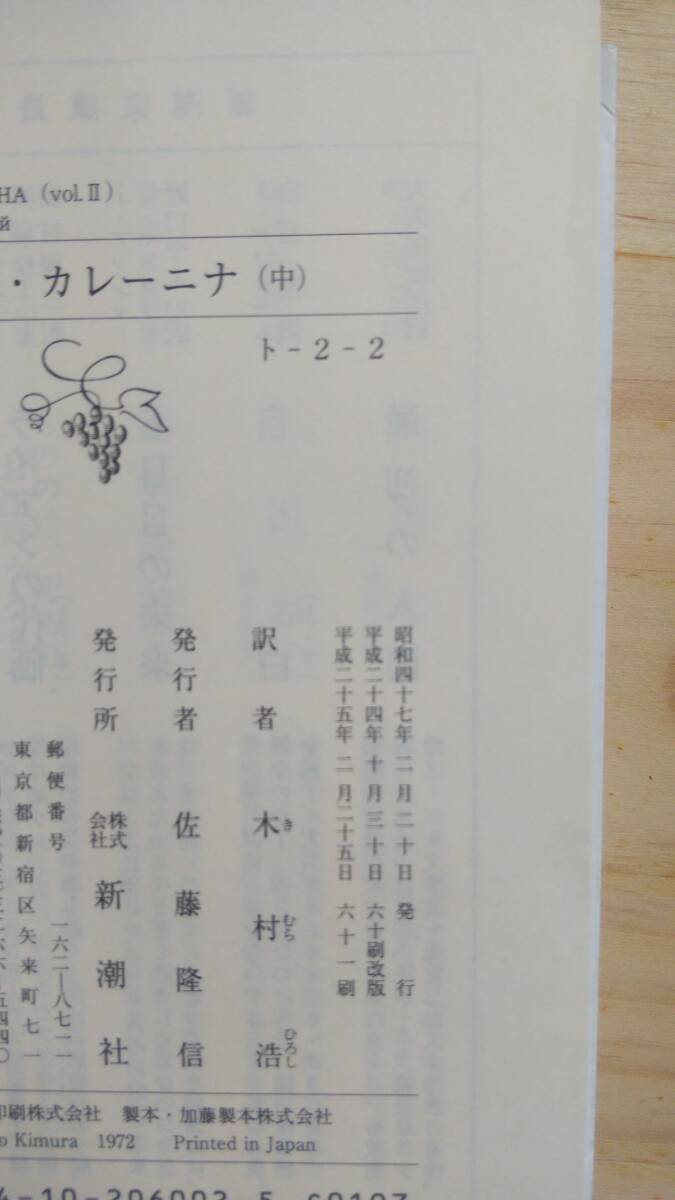 HA (vol.Ⅱ)
й
・カレーニナ(中)
ト-2-2
昭和四十七年二月二十日発行
平成二十四年十月三十日六十刷改版
平成二十五年二月二十五日六十一刷
訳者木村浩
き むら ひろし
発行者佐藤隆信
発行所株式会社新潮社
郵便番号一六二―八七一一
東京都新宿区矢来町七一
印刷株式会社 製本・加藤製本株式会社
o Kimura 1972 Printed in Japan
4-10-206002-5 C0197